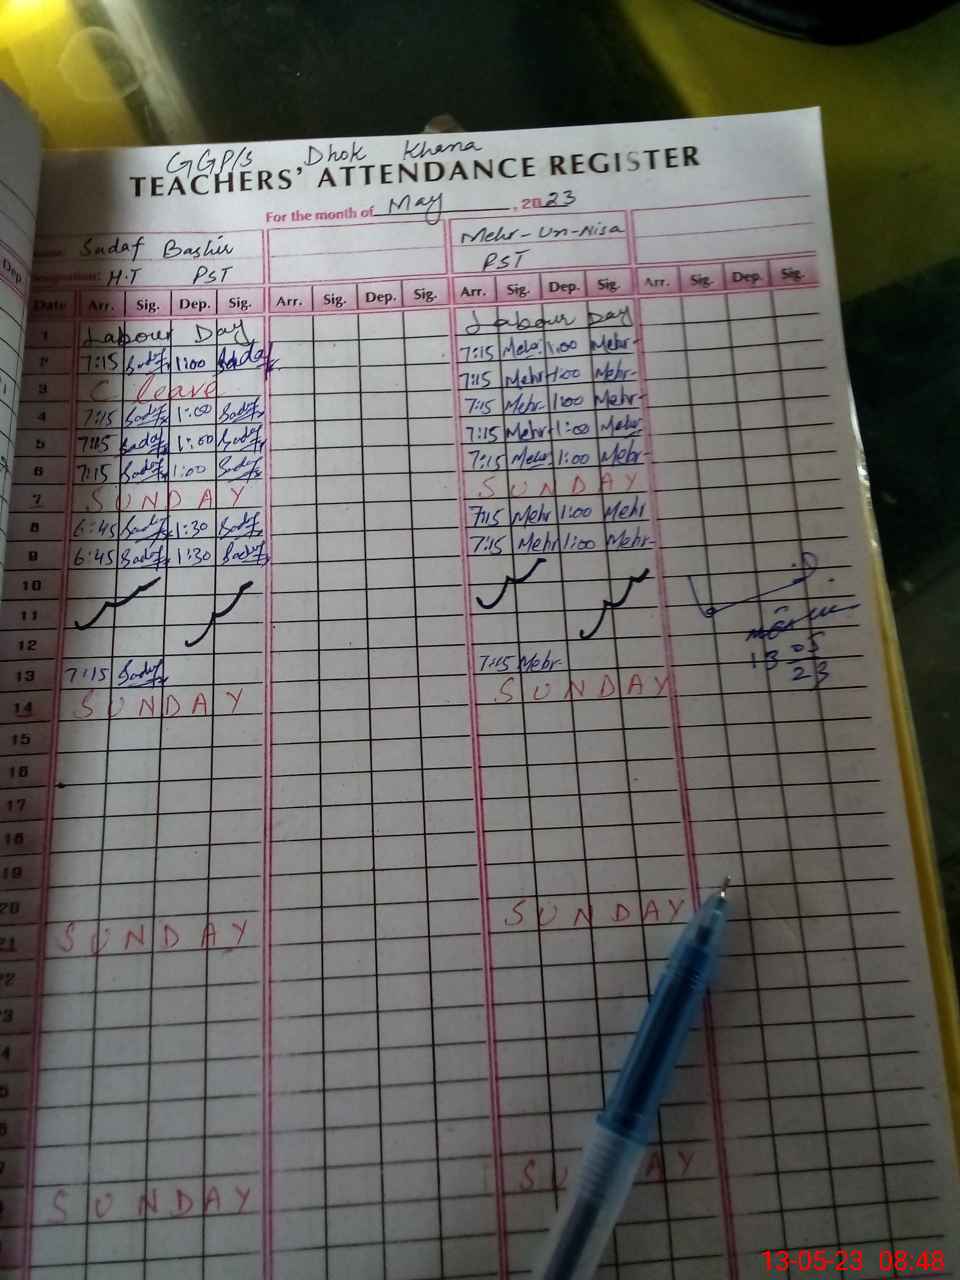 GGP/S Dhok Khana
TEACHERS' ATTENDANCE REGISTER
For the month of May, 2023
Sadaf Bashir Mehr-Un-Nisa
H.T PST PST
Dep.
Date Arr. Sig. Dep. Sig. Arr. Sig. Dep. Sig. Arr. Sig. Dep. Sig. Arr. Sig. Dep. Sig.
1 Labour Day Labour Day
2 7:15 Sadaf 1:00 Sadaf 7:15 Mehr- 1:00 Mehr-
3 C leave 7:15 Mehr- 1:00 Mehr-
4 7:15 Sadaf 1:00 Sadaf 7:15 Mehr- 1:00 Mehr-
5 7:15 Sadaf 1:00 Sadaf 7:15 Mehr- 1:00 Mehr-
6 7:15 Sadaf 1:00 Sadaf 7:15 Mehr 1:00 Mehr-
7 SUNDAY SUNDAY
8 6:45 Sadaf 1:30 Sadaf 7:15 Mehr 1:00 Mehr
9 6:45 Sadaf 1:30 Sadaf 7:15 Mehr 1:00 Mehr-
10
11
12
13 7:15 Sadaf 7:15 Mehr- 13 05 23
14 SUNDAY SUNDAY
15
16
17
18
19
20
21 SUNDAY SUNDAY
22
3
4
5
SUNDAY SU AY
13-05-23 08:48